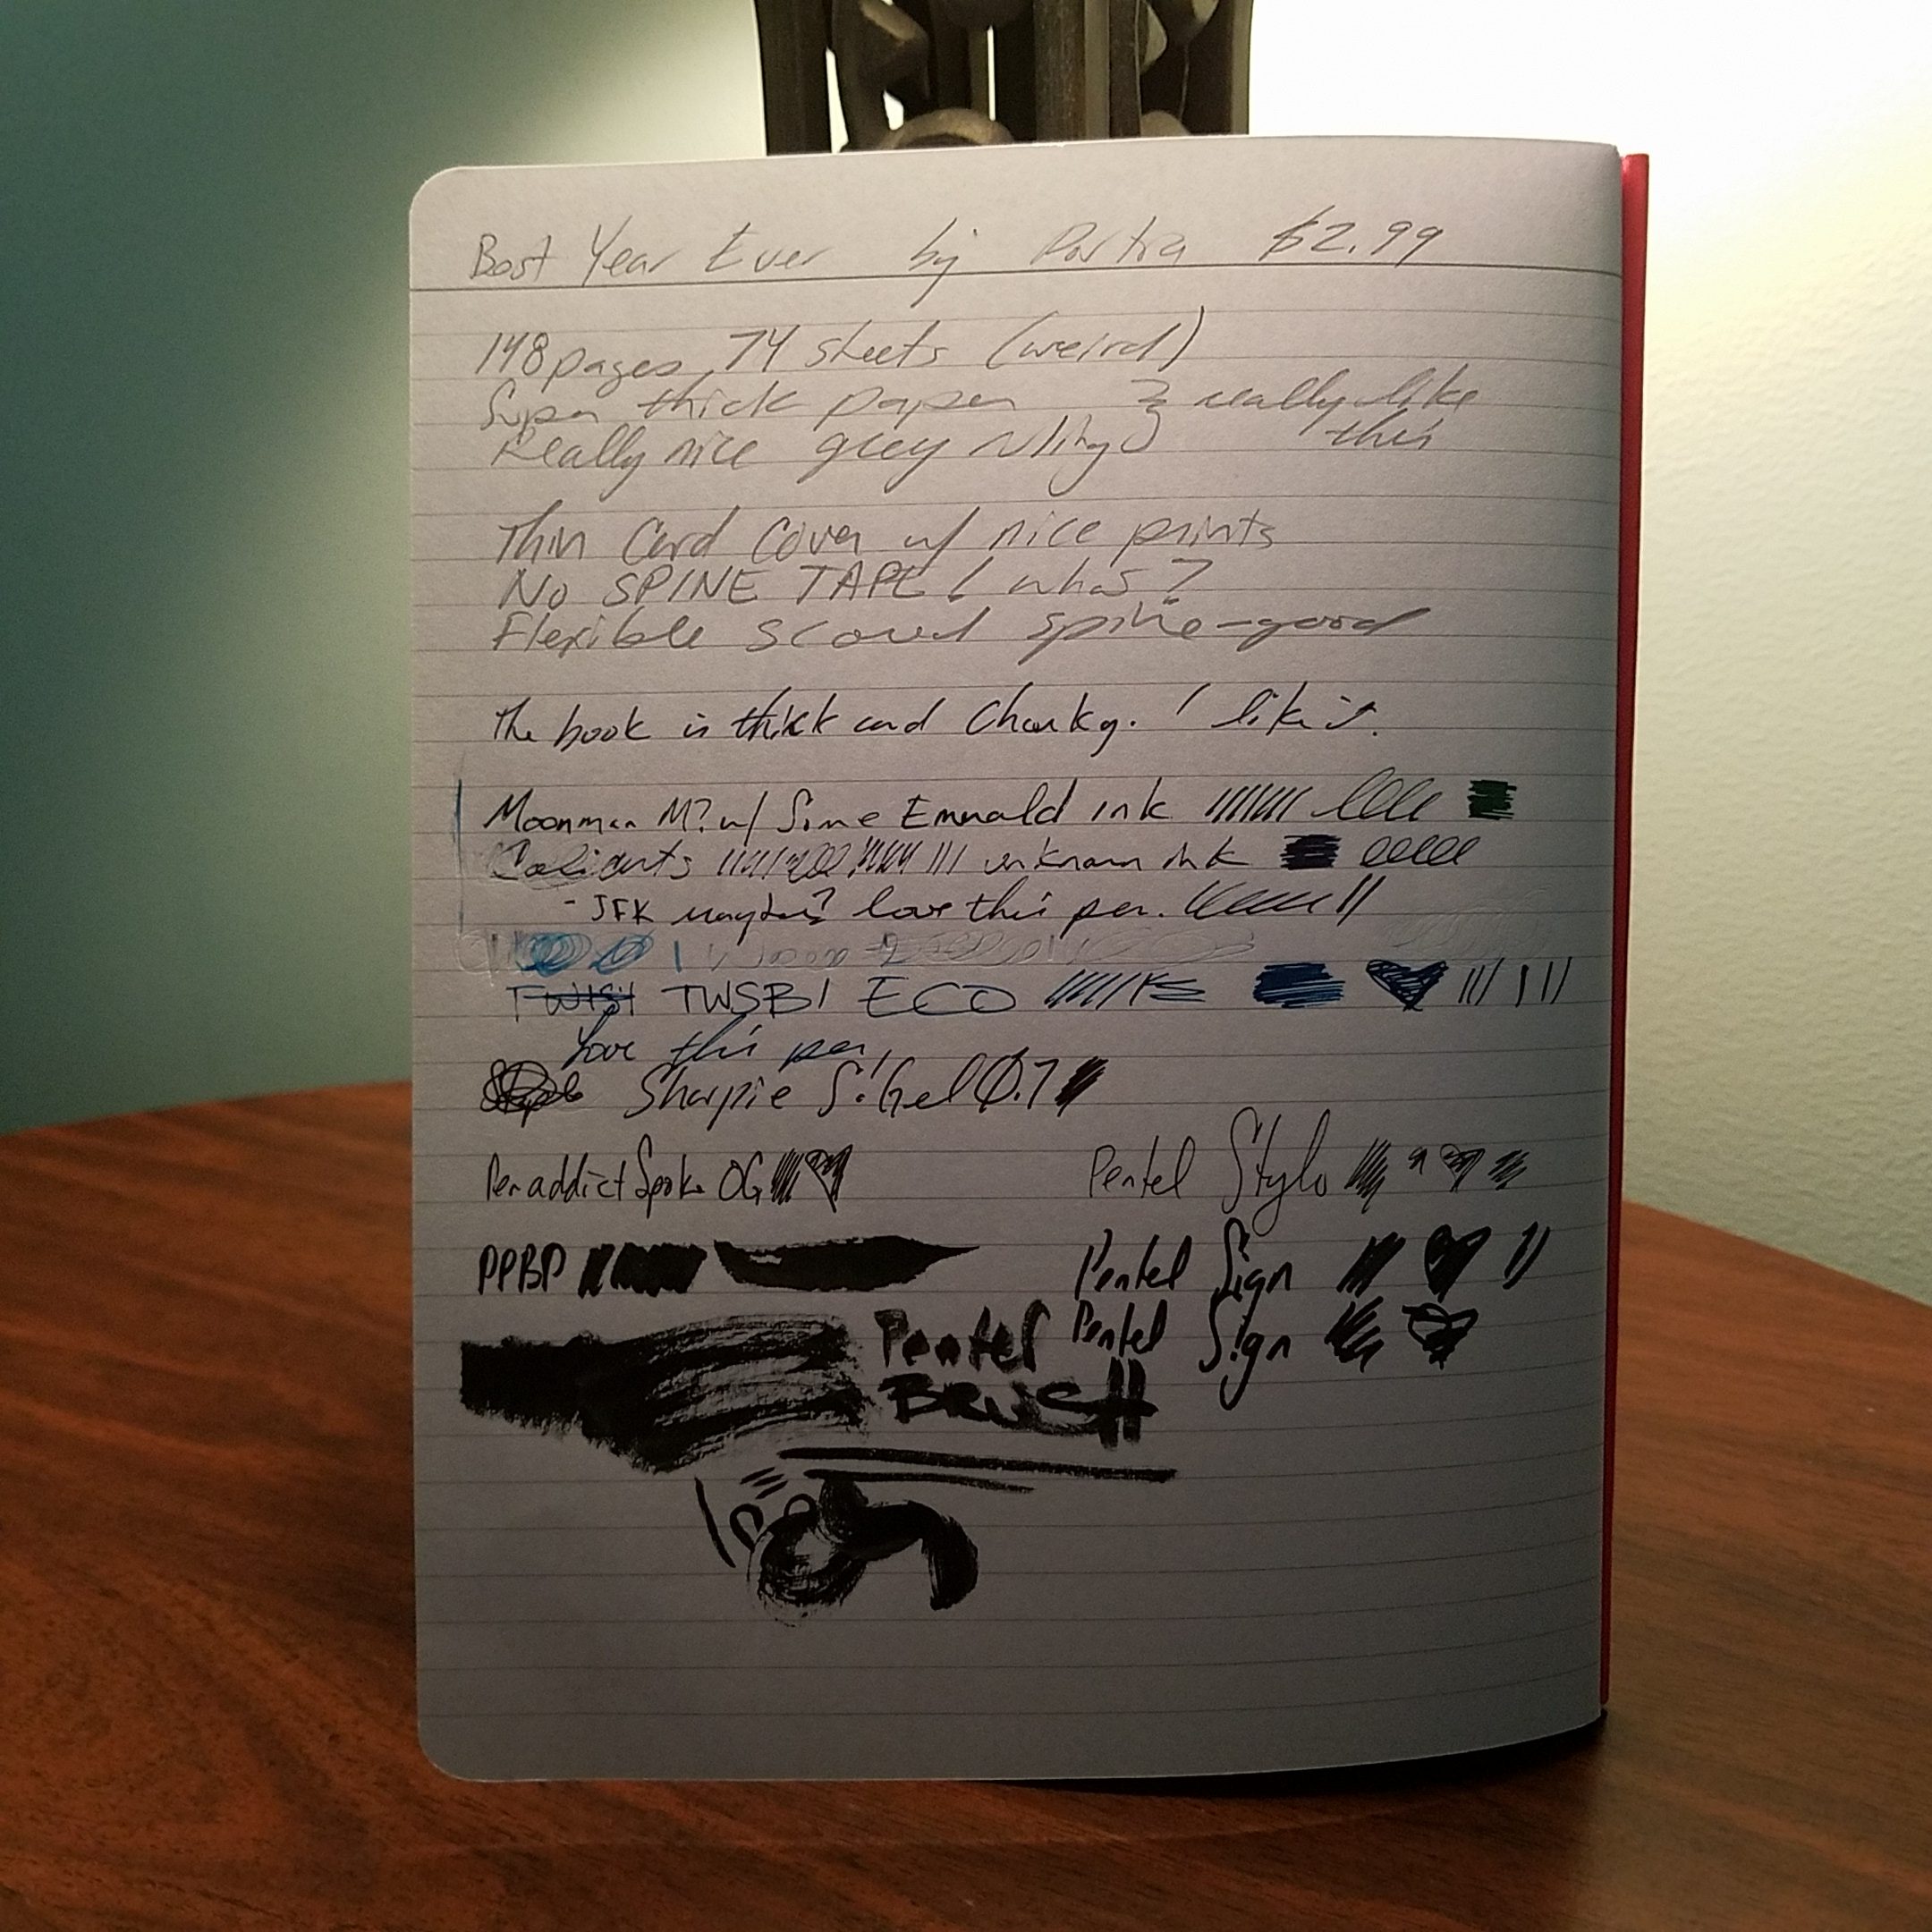 Best Year Ever by Portra $2.99
148 pages, 74 sheets (weird)
Super thick paper } really like
Really nice grey ruling } this
Thin Card Cover w/ nice prints
No SPINE TAPE! what?
Flexible scored spine - good
The book is thick and Chunky. I like it.
Moonman M? w/ Some Emerald ink
Caliarts unknown ink
- JFK maybe? love this pen.
TWSBI ECO
Love this pen
Sharpie S·Gel 0.7
Pen addict Spoke OG Pentel Stylo
PPBP Pentel Sign
Pentel Pentel Sign
BRUSH